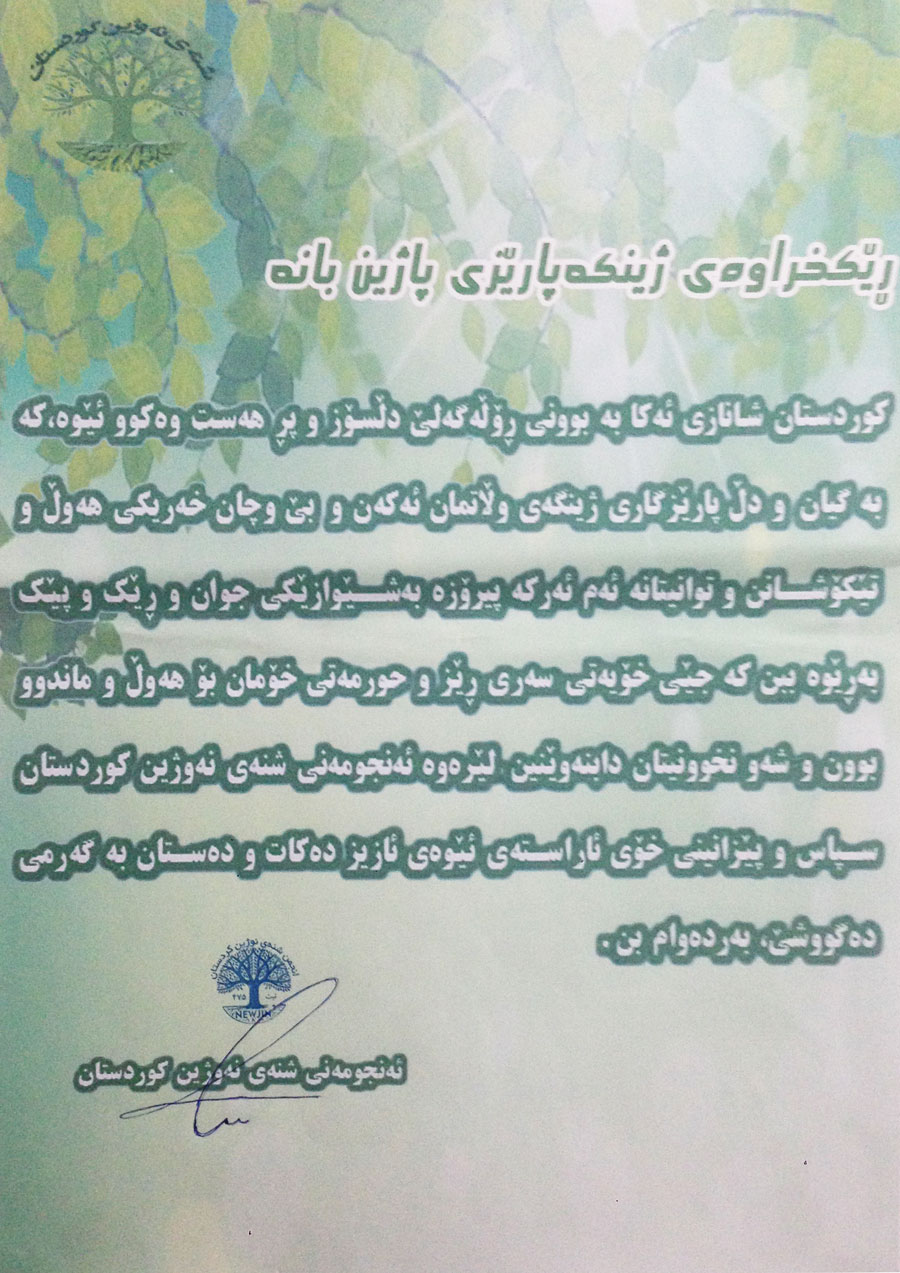 شنەی نەوژین کوردستان
ڕێکخراوەی ژینکەپارێزی پاژین بانە
کوردستان شانازی ئەکا بە بوونی ڕۆڵەگەلێ دڵسۆز و پڕ هەست وەکوو ئێوە،کە
بە گیان و دڵ پارێزگاری ژینگەی وڵاتمان ئەکەن و بێ وچان خەریکی هەوڵ و
تێکۆشانن و توانیتانە ئەم ئەرکە پیرۆزە بەشێوازێکی جوان و ڕێک و پێک
بەڕێوە بین کە جێی خۆیەتی سەری ڕێژ و حورمەتی خۆمان بۆ هەوڵ و ماندوو
بوون و شەو نخوونیتان دابنەوێنین لێرەوە ئەنجومەنی شنەی نەوژین کوردستان
سپاس و پێزانینی خۆی ئاراستەی ئێوەی ئازیز دەکات و دەستان بە گەرمی
دەگووشێ، بەردەوام بن.
انجمن شنەی نوژین کردستان
ثبت ۲۷۵
NEWJIN
ئەنجومەنی شنەی نەوژین کوردستان